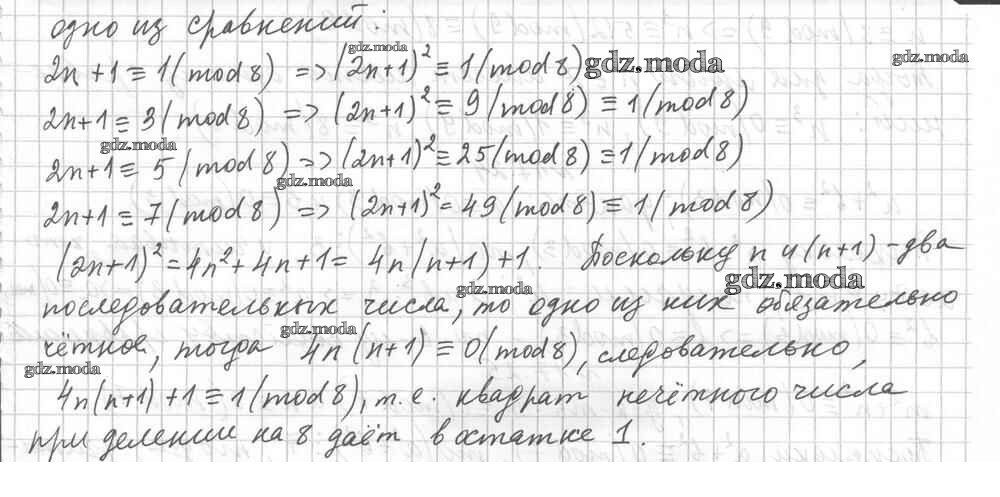 одно из сравнений:
2n+1 ≡ 1 (mod 8) => (2n+1)² ≡ 1 (mod 8)
2n+1 ≡ 3 (mod 8) => (2n+1)² ≡ 9 (mod 8) ≡ 1 (mod 8)
2n+1 ≡ 5 (mod 8) => (2n+1)² ≡ 25 (mod 8) ≡ 1 (mod 8)
2n+1 ≡ 7 (mod 8) => (2n+1)² = 49 (mod 8) ≡ 1 (mod 8)
(2n+1)² = 4n² + 4n + 1 = 4n(n+1) + 1. Поскольку n и (n+1) – два
последовательных числа, то одно из них обязательно
чётное, тогда 4n(n+1) ≡ 0 (mod 8), следовательно,
4n(n+1) + 1 ≡ 1 (mod 8), т.е. квадрат нечётного числа
при делении на 8 даёт в остатке 1.
gdz.moda
gdz.moda
gdz.moda
gdz.moda
gdz.moda
gdz.moda
gdz.moda
gdz.moda
gdz.moda